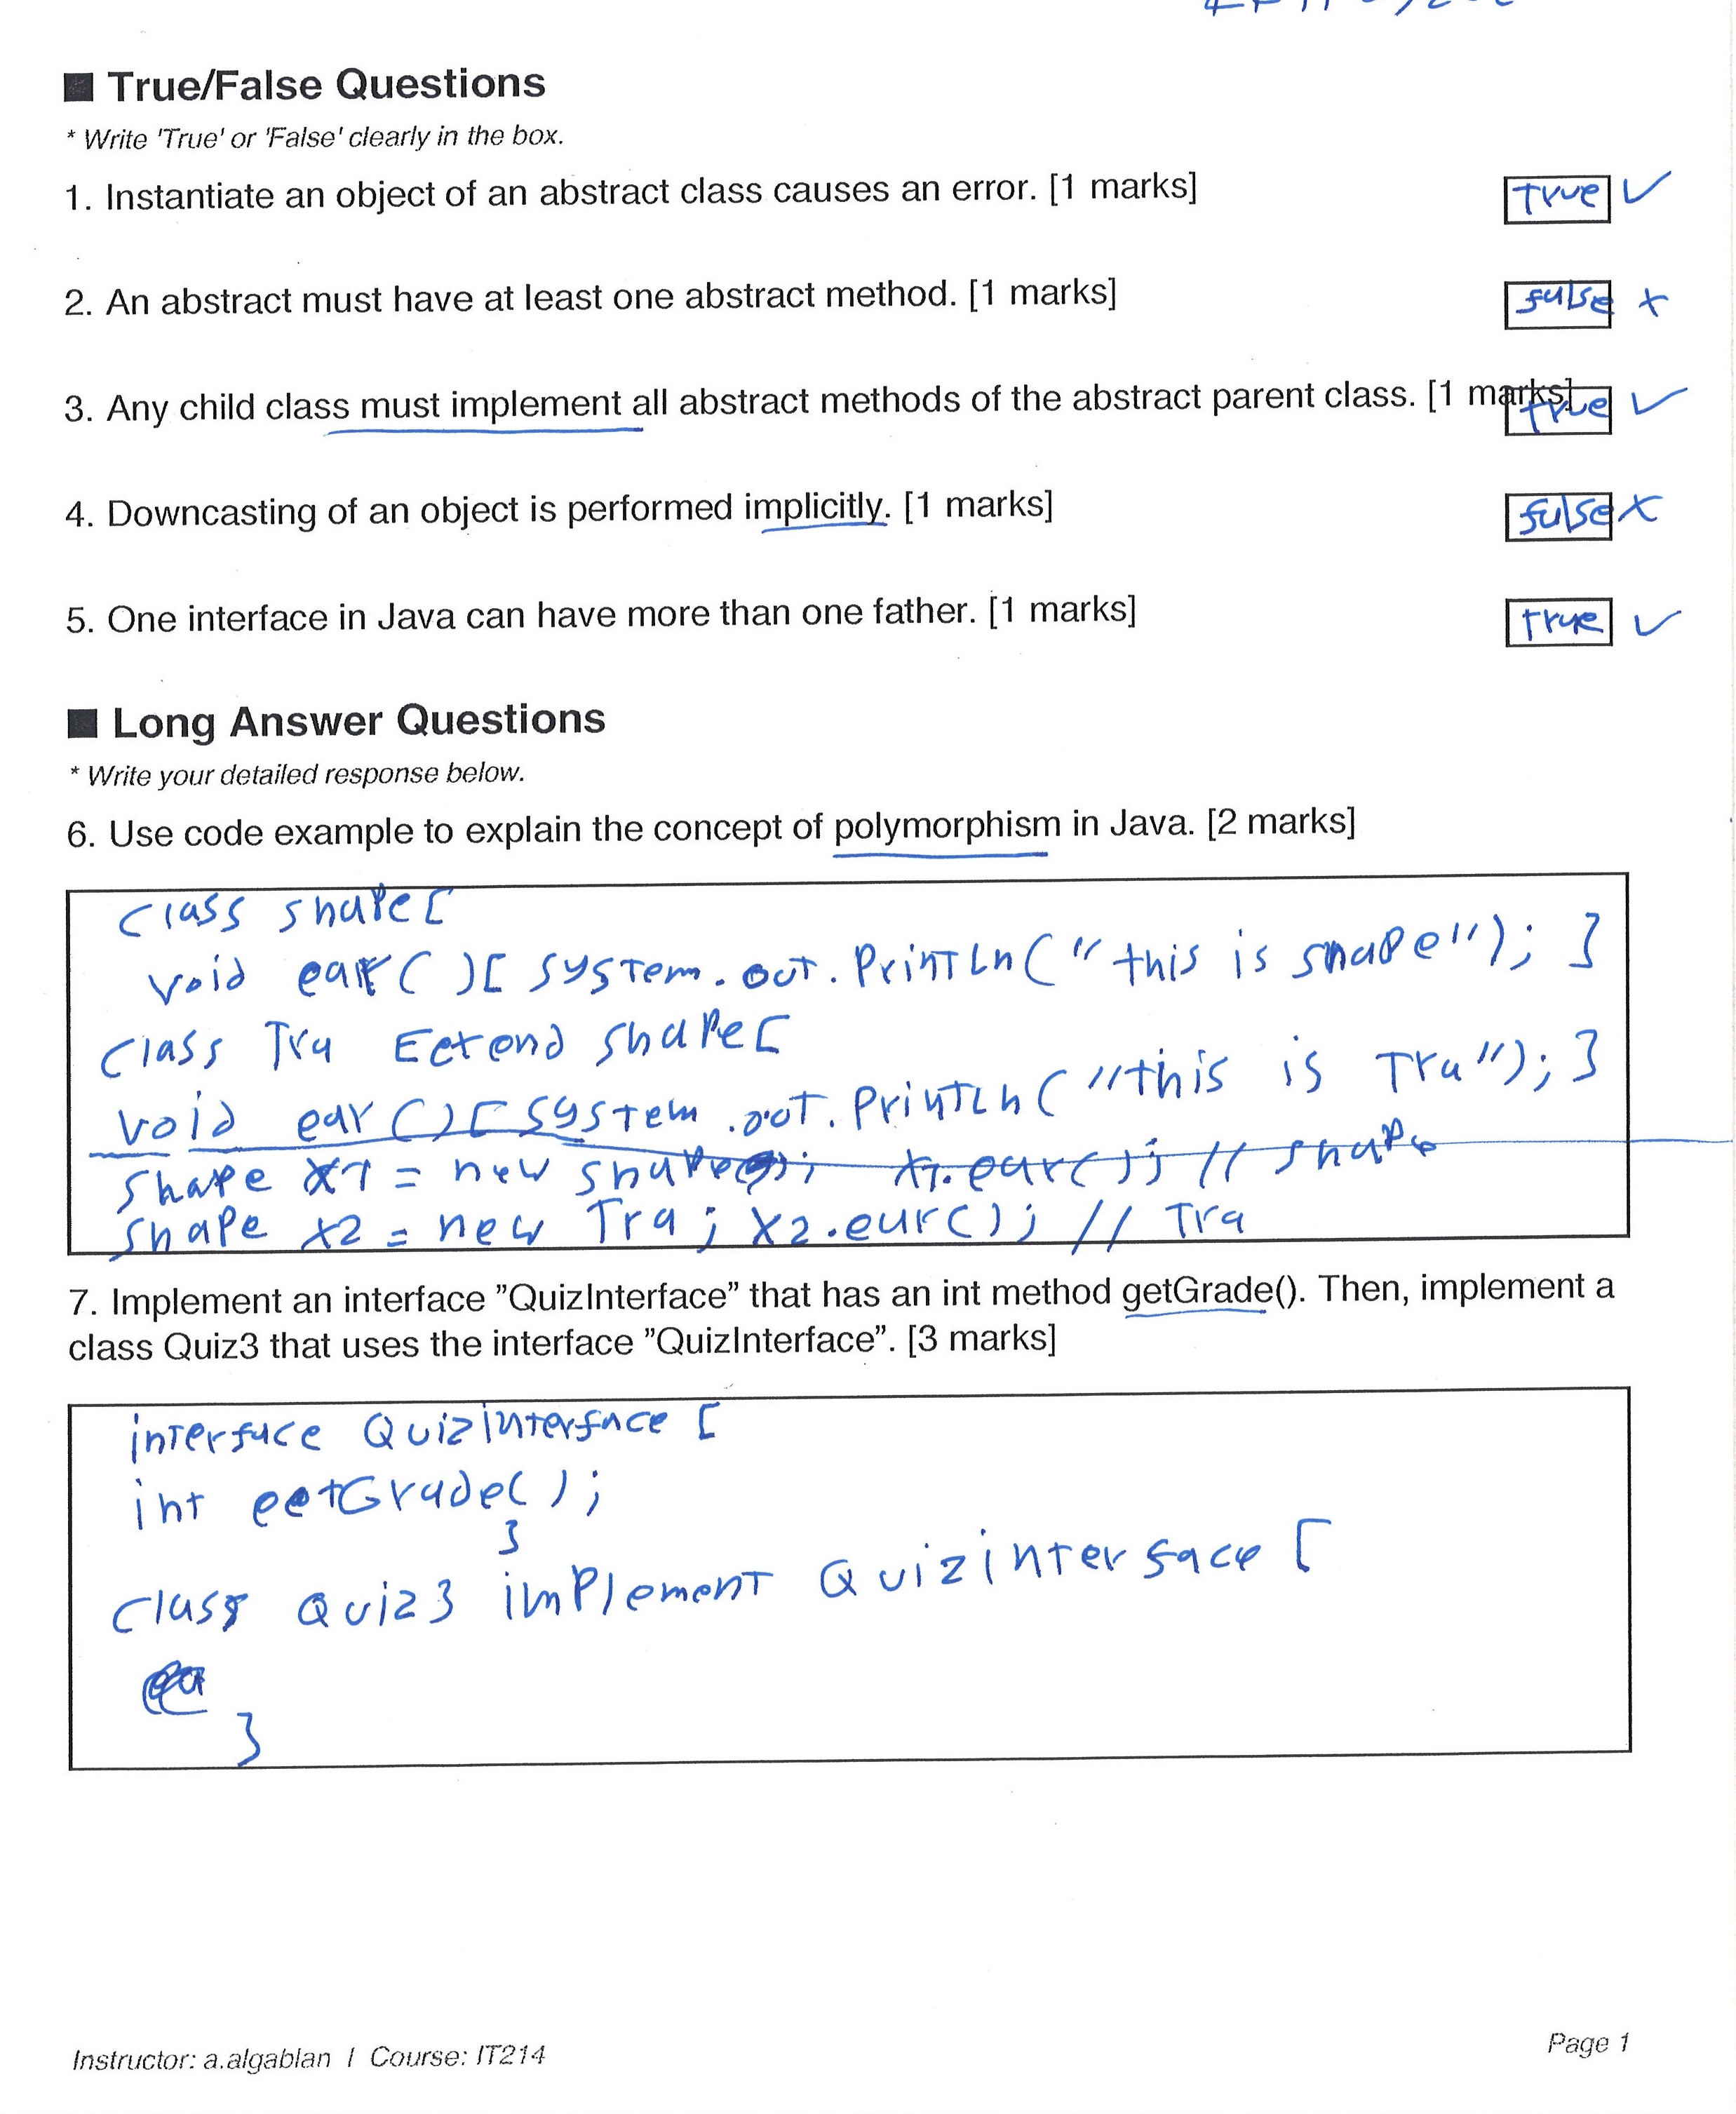 ■ True/False Questions
* Write 'True' or 'False' clearly in the box.
1. Instantiate an object of an abstract class causes an error. [1 marks] True ✓
2. An abstract must have at least one abstract method. [1 marks] fulse ×
3. Any child class must implement all abstract methods of the abstract parent class. [1 marks] true ✓
4. Downcasting of an object is performed implicitly. [1 marks] fulse ×
5. One interface in Java can have more than one father. [1 marks] true ✓
■ Long Answer Questions
* Write your detailed response below.
6. Use code example to explain the concept of polymorphism in Java. [2 marks]
class shape[
void ear()[ system.out.PrintLn("this is shape"); }
class Tra Extend shape[
void ear()[ system.out.PrintLn("this is Tra"); }
shape x1 = new shape(); x1.ear(); // shape
shape x2 = new Tra; x2.ear(); // Tra
7. Implement an interface "QuizInterface" that has an int method getGrade(). Then, implement a
class Quiz3 that uses the interface "QuizInterface". [3 marks]
interface QuizInterface [
int getGrade();
}
class Quiz3 implement Quizinterface [
}
Instructor: a.algablan / Course: IT214
Page 1